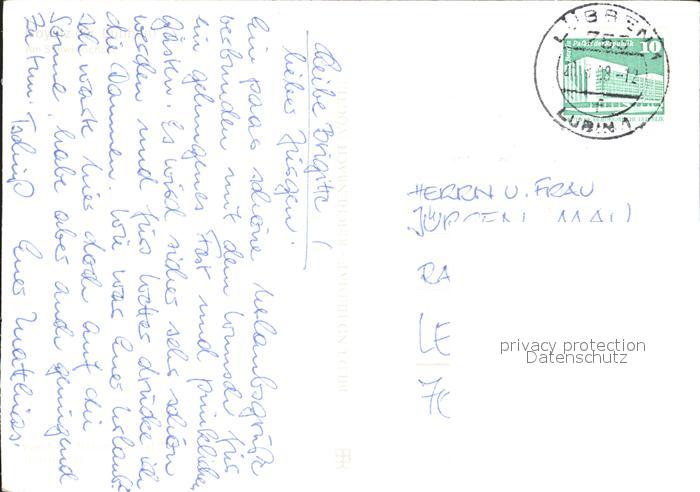 Liebe Brigitte /
lieber Jürgen.
Ein paar schöne Urlaubsgrüße
verbunden mit dem Wunsch für
ein gelungenes Fest und pünktlichen
Gästen. Es wird sicher sehr schön
werden und fürs Wetter drücke ich
die Daumen. Wie war Euer Urlaub?
Ich warte hier doch auf die
Sonne, habe aber auch genügend
zu tun. Tschüß Euer Matthias.
LÜBBEN 1
LUBIN 1
Palast der Republik 10
HERRN U. FRAU
JÜRGEN
RA
LE
privacy protection
Datenschutz